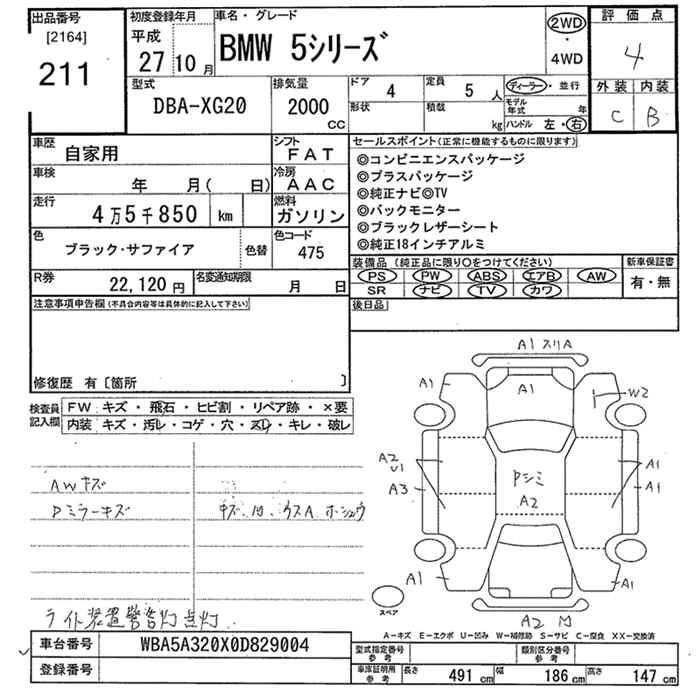 出品番号
[2164]
211
初度登録年月
平成
27 10月
車名・グレード
BMW 5シリーズ
2WD
・
4WD
評価点
4
外装 内装
C B
型式
DBA-XG20
排気量
2000
CC
ドア
4
定員
5人
ディーラー・並行
形状
積載
kg
モデル年式 年
ハンドル 左・右
車歴
自家用
シフト
FAT
車検
年 月( 日)
冷房
AAC
走行
4万5千850 km
燃料
ガソリン
色
ブラック・サファイア
色替
色コード
475
R券
22,120円
名変通知期限
月 日
セールスポイント(正常に機能するものに限ります)
◎コンビニエンスパッケージ
◎プラスパッケージ
◎純正ナビ◎TV
◎バックモニター
◎ブラックレザーシート
◎純正18インチアルミ
装備品(純正品に限り○をつけてください)
PS PW ABS エアB AW
SR ナビ TV カワ
新車保証書
有・無
後日品
注意事項申告欄(不具合内容等は具体的に記入して下さい)
修復歴 有〔箇所 〕
検査員
記入欄
FW キズ・飛石・ヒビ割・リペア跡・×要
内装 キズ・汚レ・コゲ・穴・スレ・キレ・破レ
AWキズ
Pミラーキズ
ライト装置警告灯点灯
A1スリA
A1
A1
W2
A2
U1
A3
Pシミ
A2
A1
A1
A1
A1
A2
スペア
A−キズ E−エクボ U−凹み W−補修跡 S−サビ C−腐食 XX−交換済
車台番号
WBA5A320X0D829004
登録番号
型式指定番号
参考
類別区分番号
参考
車庫証明用
参考
長さ
491 cm
幅
186 cm
高さ
147 cm